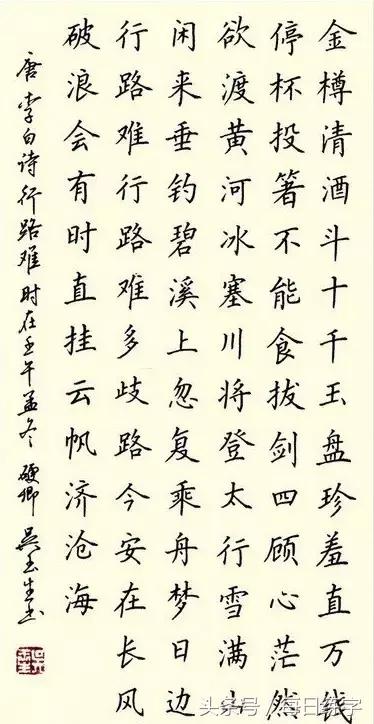 金樽清酒斗十千玉盘珍羞直万钱
停杯投箸不能食拔剑四顾心茫然
欲渡黄河冰塞川将登太行雪满山
闲来垂钓碧溪上忽复乘舟梦日边
行路难行路难多歧路今安在长风
破浪会有时直挂云帆济沧海
唐李白诗行路难时在壬午孟冬硬卿吴玉生书
头条号／每日练字